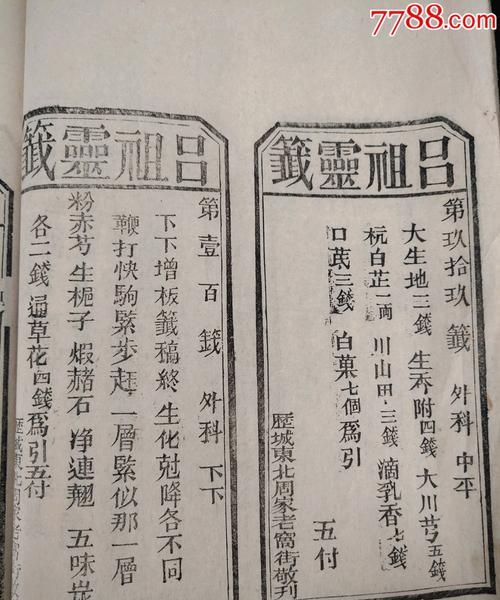 7788.com
呂祖靈籤
第玖拾玖籤 外科 中平
大生地三錢 生香附四錢 大川芎五錢
杭白芷一兩 川山甲三錢 滴乳香七錢
口茋三錢 白菓七個爲引
五付
歷城東北周家老窩街敬刊
呂祖靈籤
第壹百籤 外科 下下
下下增板籤稿終 生化尅降各不同
鞭打快駒緊步趕 一層緊似那一層
粉赤芍 生梔子 煆赭石 净連翹 五味
各二錢 通草花四錢爲引五付
歷城東北周家老窩街